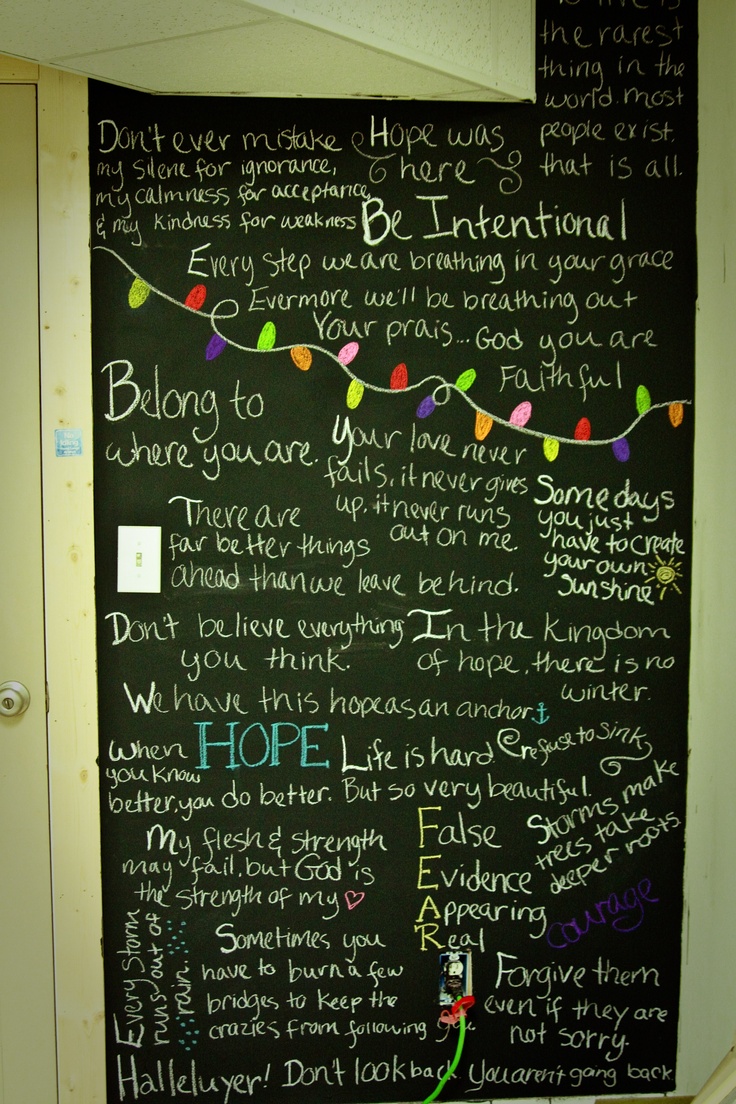 To live is
the rarest
thing in the
world. most
people exist.
that is all.
Don't ever mistake
my silene for ignorance,
my calmness for acceptance,
& my kindness for weakness
Hope was
here
Be Intentional
Every step we are breathing in your grace
Evermore we'll be breathing out
Your prais... God you are
Faithful
Belong to
where you are.
Your love never
fails, it never gives
up, it never runs
out on me.
Some days
you just
have to create
your own
sunshine
There are
far better things
ahead than we leave behind.
Don't believe everything
you think.
In the kingdom
of hope, there is no
winter.
We have this hope as an anchor
When
you know
better, you do better.
HOPE
Life is hard.
But so very beautiful.
refuse to sink
Storms make
trees take
deeper roots.
My flesh & strength
may fail, but God is
the strength of my
False
Evidence
Appearing
Real
courage
Every storm
runs out of
rain.
Sometimes you
have to burn a few
bridges to keep the
crazies from following you.
Forgive them
even if they are
not sorry.
Halleluyer! Don't look back. You aren't going back.